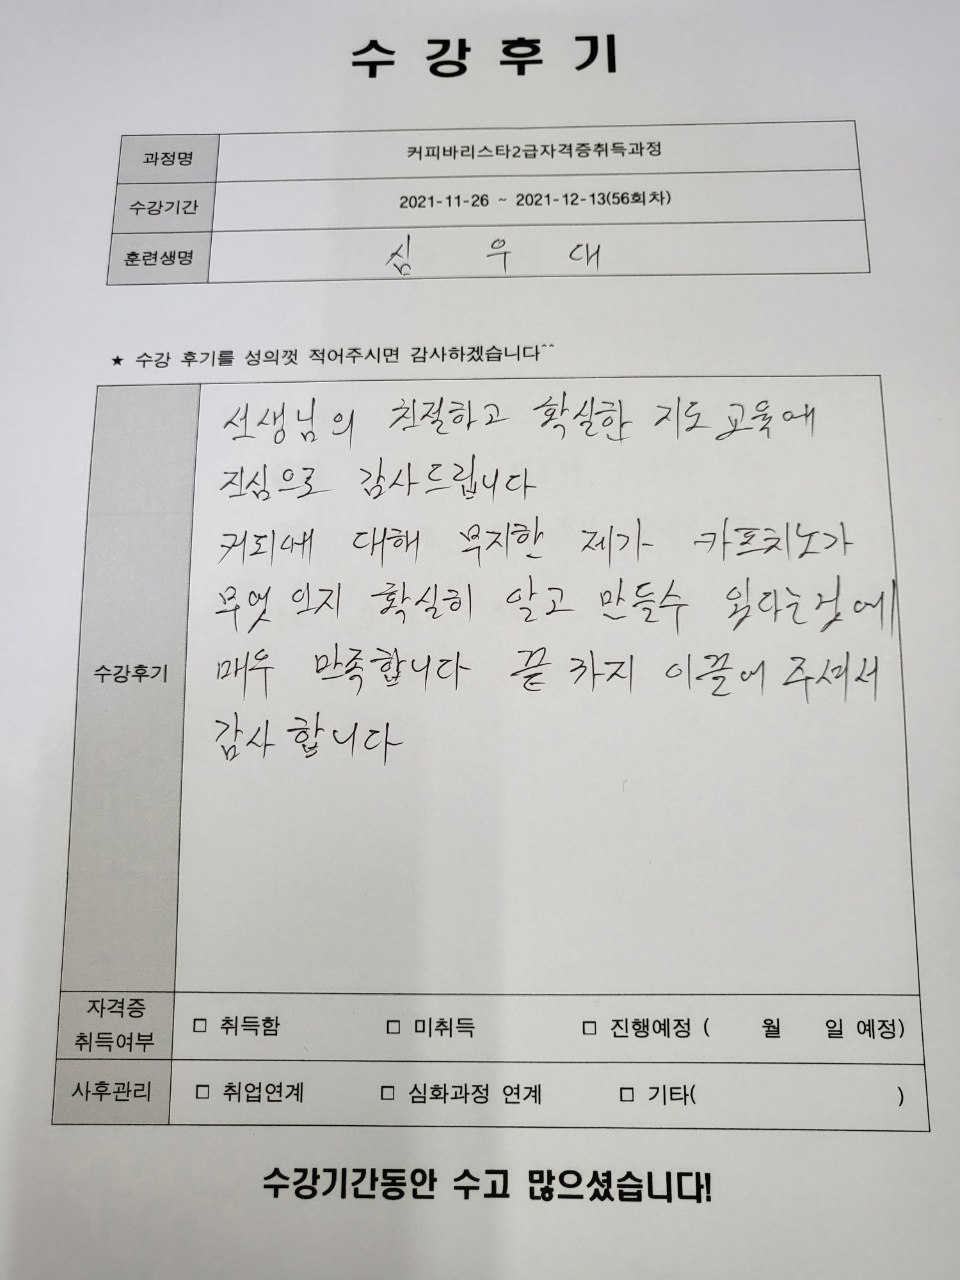 수 강 후 기
과정명 커피바리스타2급자격증취득과정
수강기간 2021-11-26 ~ 2021-12-13(56회차)
훈련생명 심 우 대
★ 수강 후기를 성의껏 적어주시면 감사하겠습니다^^
선생님의 친절하고 확실한 지도 교육에
진심으로 감사드립니다
커피에 대해 무지한 제가 카프치노가
무엇 인지 확실히 알고 만들수 있다는것에
매우 만족합니다 끝 까지 이끌어 주셔서
감사 합니다
수강후기
자격증
취득여부 □ 취득함 □ 미취득 □ 진행예정 ( 월 일 예정)
사후관리 □ 취업연계 □ 심화과정 연계 □ 기타( )
수강기간동안 수고 많으셨습니다!